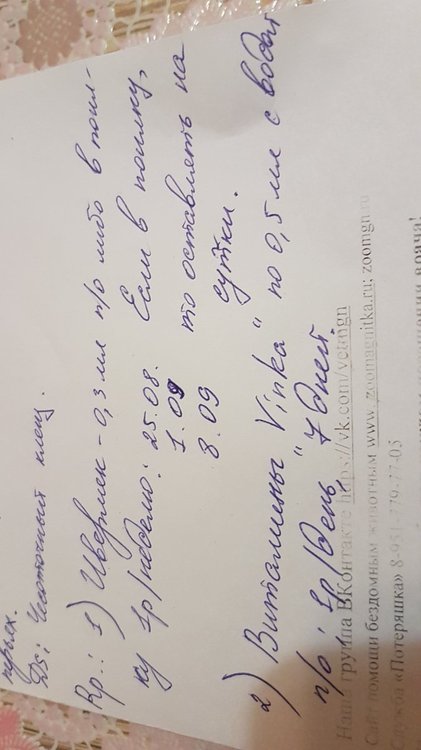 DS: Чесоточный клещ.
Rp.: 1) Ивермек - 0,3 мл п/о либо в поил-
ку 1р/неделю: 25.08. Если в поилку,
1.09 то оставлять на
8.09 сутки.
2) Витамины "Vinka" по 0,5 мл с водой
п/о: 1р/день, 7 дней.
Наша группа ВКонтакте https://vk.com/vetmgn
Сайт помощи бездомным животным www. zoomagnitka.ru; zoomgn.ru
«Потеряшка» 8-951-779-77-05